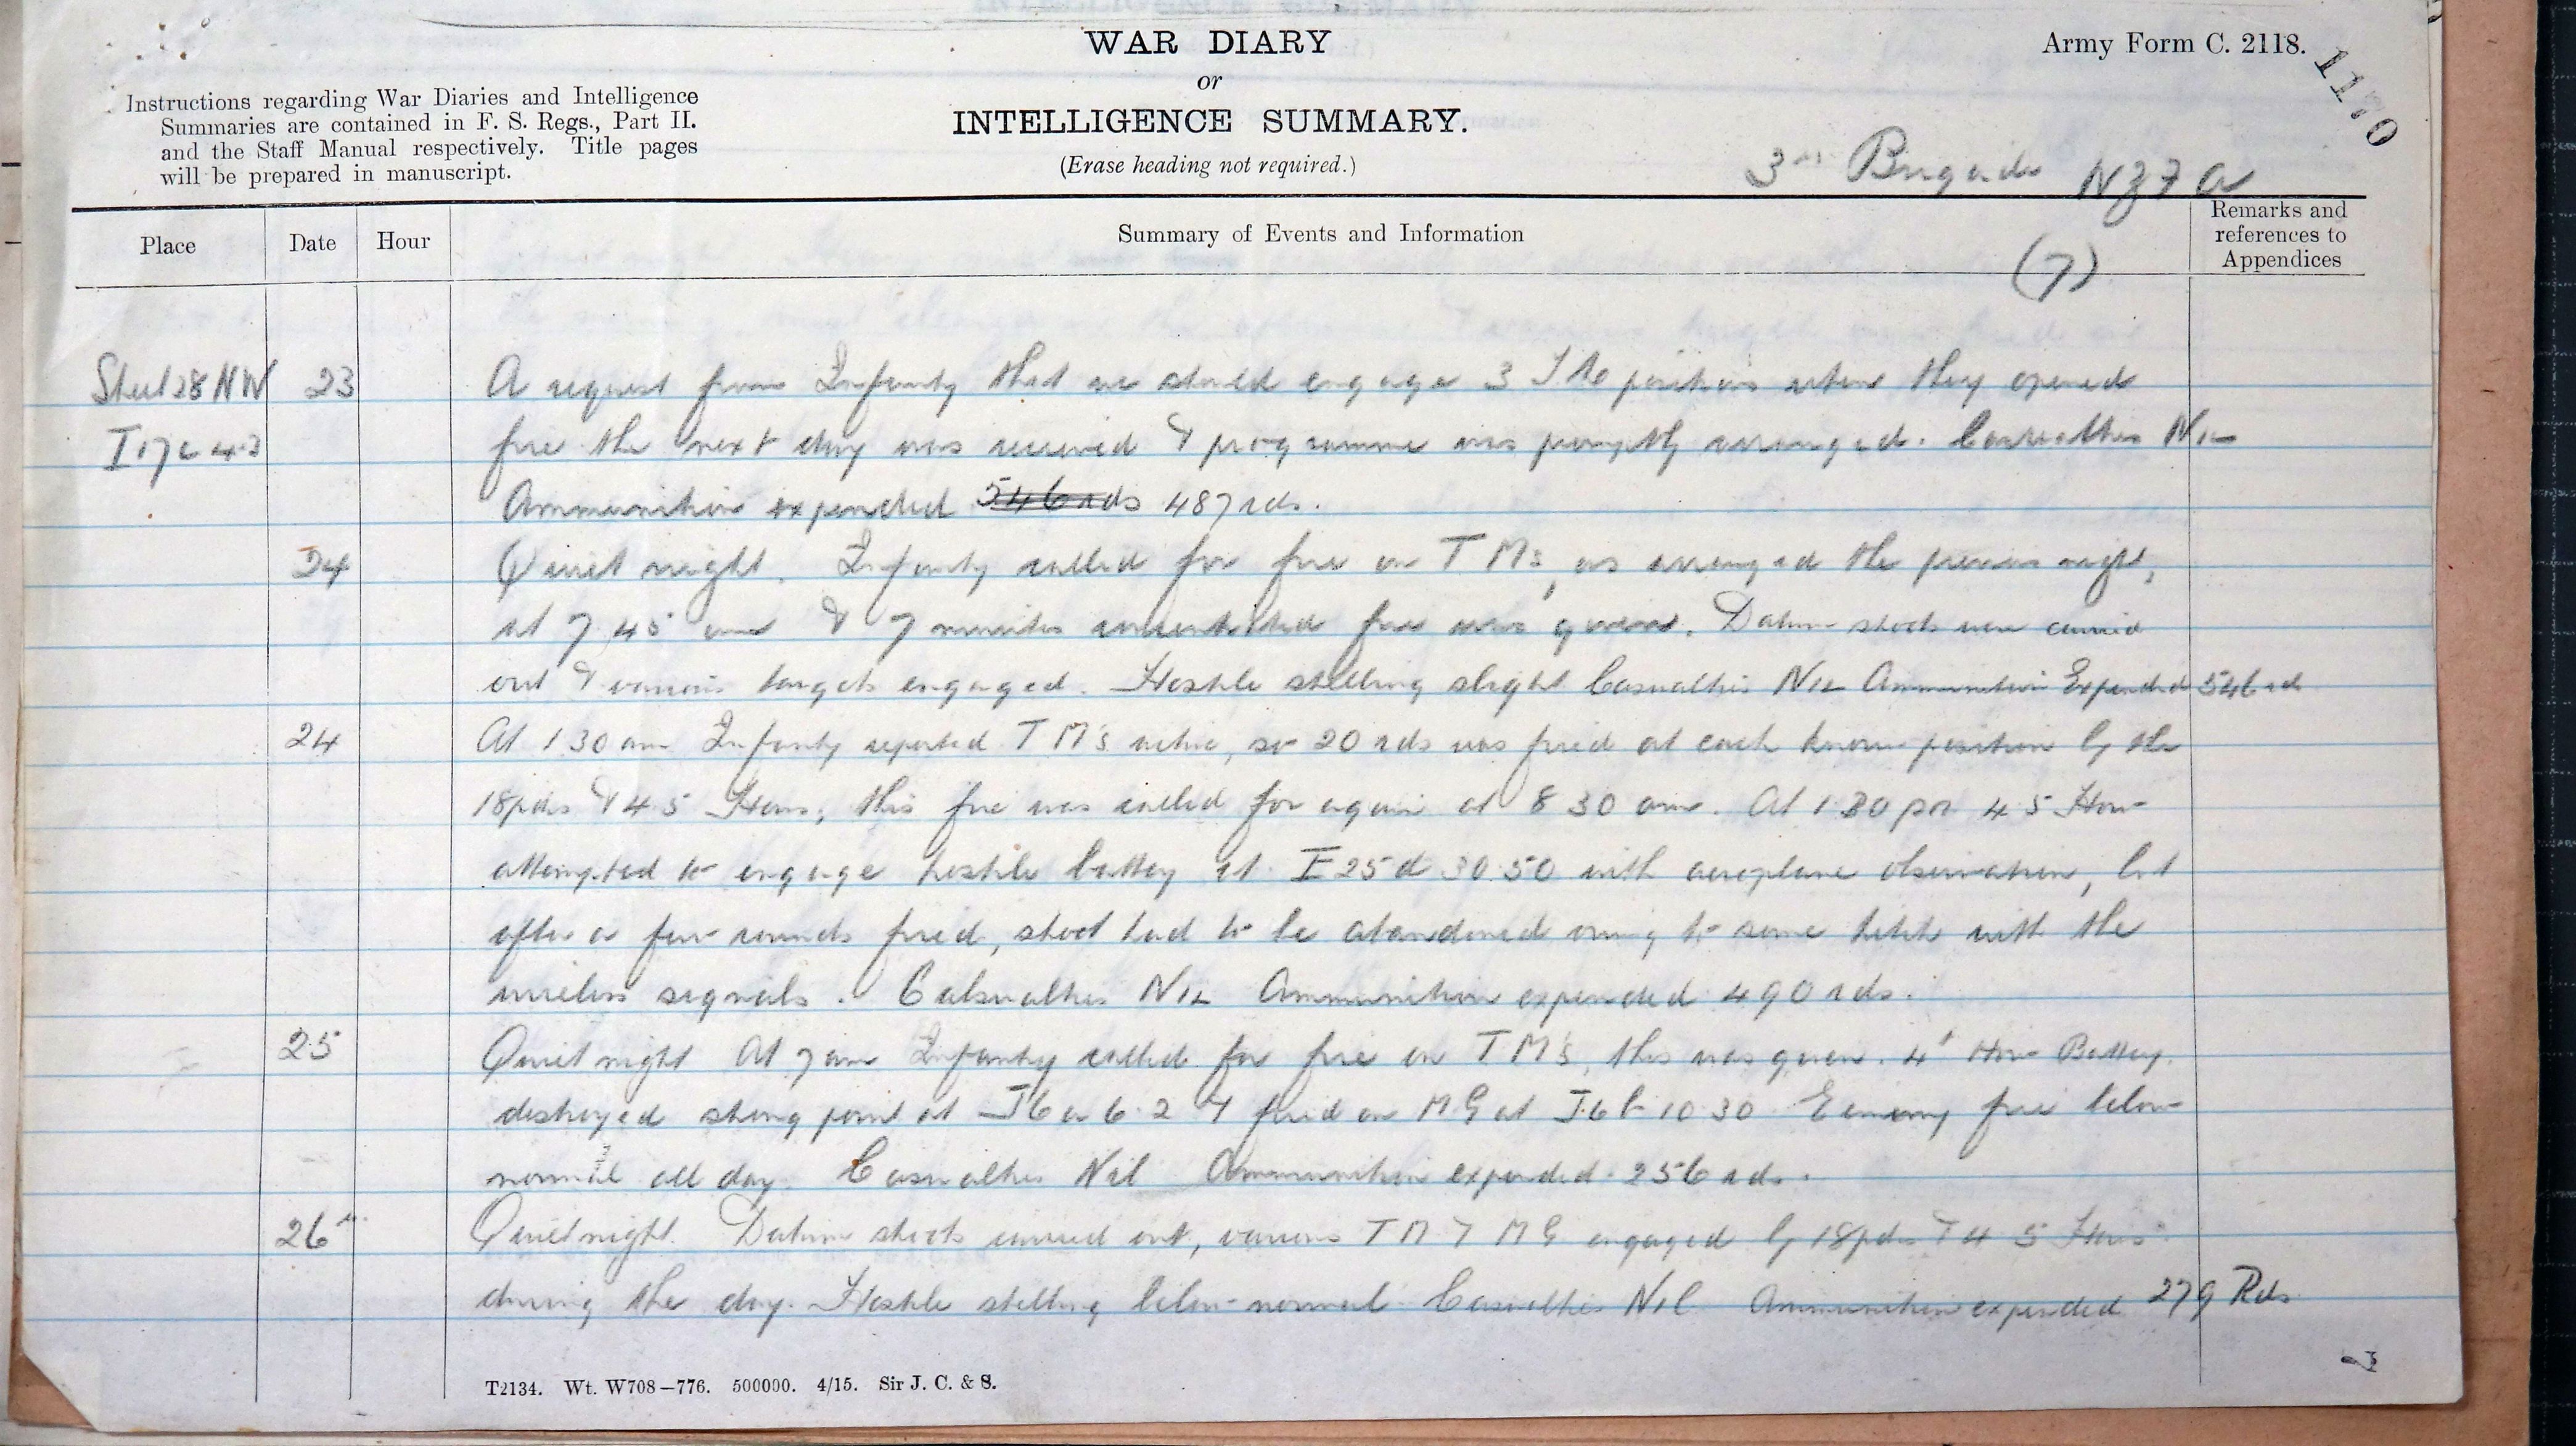 WAR DIARY
or
INTELLIGENCE SUMMARY.
(Erase heading not required.)
Army Form C. 2118.
1170
Instructions regarding War Diaries and Intelligence
Summaries are contained in F. S. Regs., Part II.
and the Staff Manual respectively. Title pages
will be prepared in manuscript.
3rd Brigade NZFA
(7)
Place Date Hour Summary of Events and Information Remarks and
references to
Appendices
Sheet 28 NW 23 A request from Infantry that we should engage 3 TM positions when they opened
I 17 c 4.3 fire the next day was received & programme was promptly arranged. Casualties Nil
Ammunition expended 546 rds 487 rds.
24 Quiet night. Infantry called for fire on TMs, as arranged the previous night,
at 7.45 am & 7 minutes concentrated fire was given. Datum shoots were carried
out & various targets engaged. Hostile shelling slight Casualties Nil Ammunition Expended 546 rds
24 At 1 30 am Infantry reported TM's active, so 20 rds was fired at each known position by the
18pdrs & 4.5 Hows, this fire was called for again at 8 30 am. At 1.30 pm 4.5 How
attempted to engage hostile battery at I 25 d 30.50 with aeroplane observation, but
after a few rounds fired, shoot had to be abandoned owing to some hitch with the
wireless signals. Casualties Nil Ammunition expended 490 rds.
25 Quiet night At 7 am Infantry called for fire on TM's, this was given. 4th How Battery
destroyed strong point at J 6 a 6.2 & fired on MG at J.6 b 10 30 Enemy fire below
normal all day. Casualties Nil Ammunition expended. 256 rds.
26th Quiet night. Datum shoots carried out, various TM & MG engaged by 18pdrs & 4 5 Hows
during the day. Hostile shelling below normal Casualties Nil Ammunition expended 279 Rds
T2134. Wt. W708—776. 500000. 4/15. Sir J. C. & S.